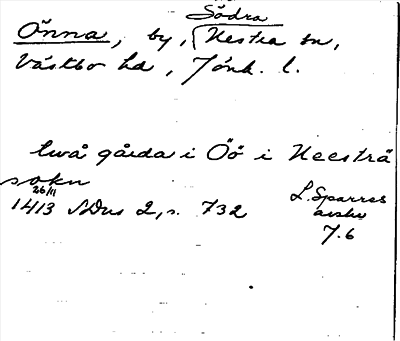 Södra
Önna, by, Nestra sn,
Västbo hd, Jönk. l.
twå gårda i Öö i Neesträ
sokn
26/11
1413 SDns 2, s. 732
L. Sparres
avskr
7.6